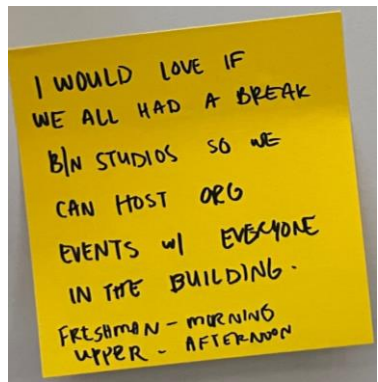 I WOULD LOVE IF
WE ALL HAD A BREAK
B/N STUDIOS SO WE
CAN HOST ORG
EVENTS w/ EVERYONE
IN THE BUILDING.
FRESHMAN - MORNING
UPPER - AFTERNOON